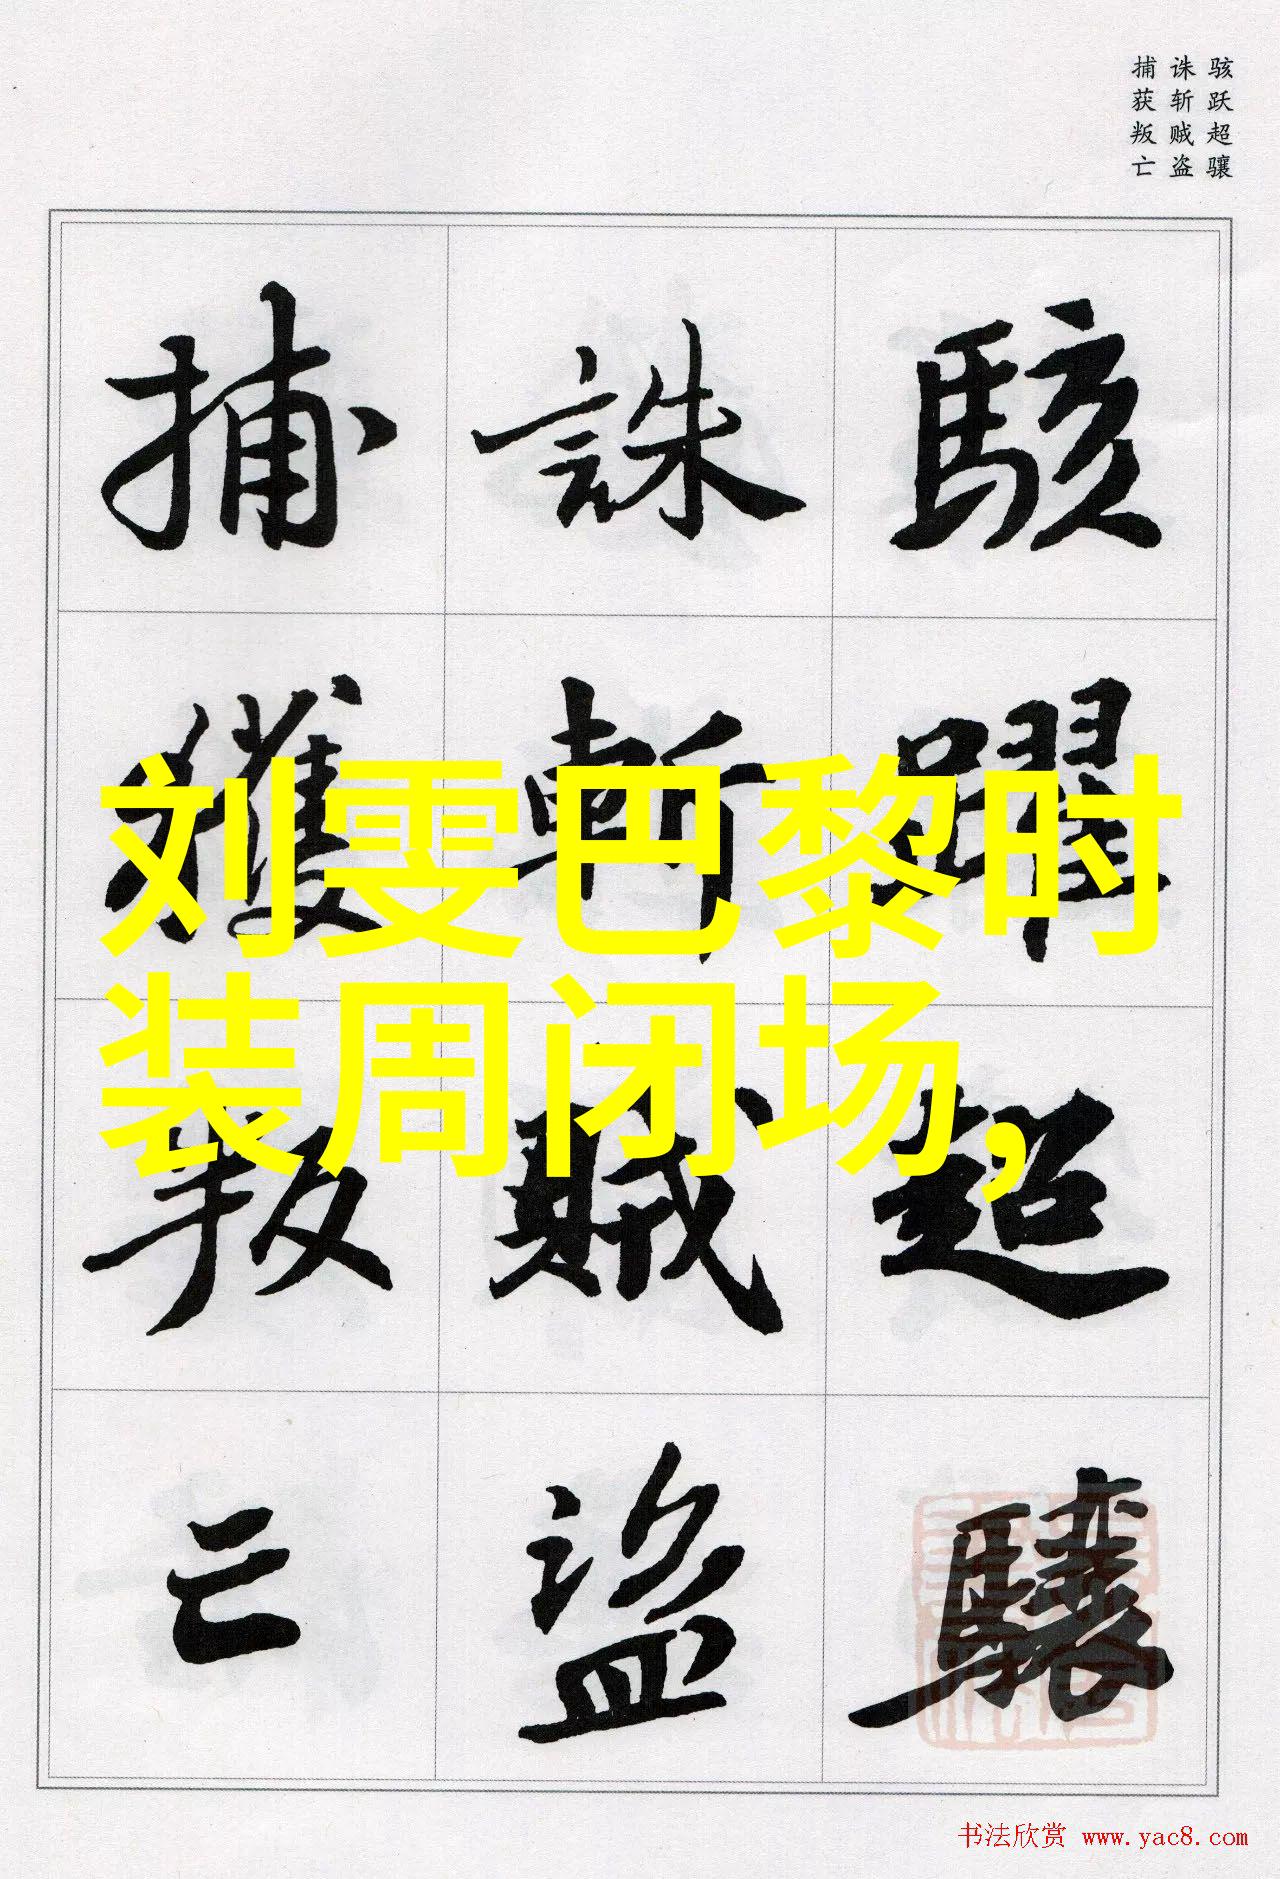 骇跃超骧
诛斩贼盗
捕获叛亡
駭躍超驤
誅斬賊盜
捕獲叛亡
刘雯巴黎时
装周闭场，
书法欣赏 www.yac8.com